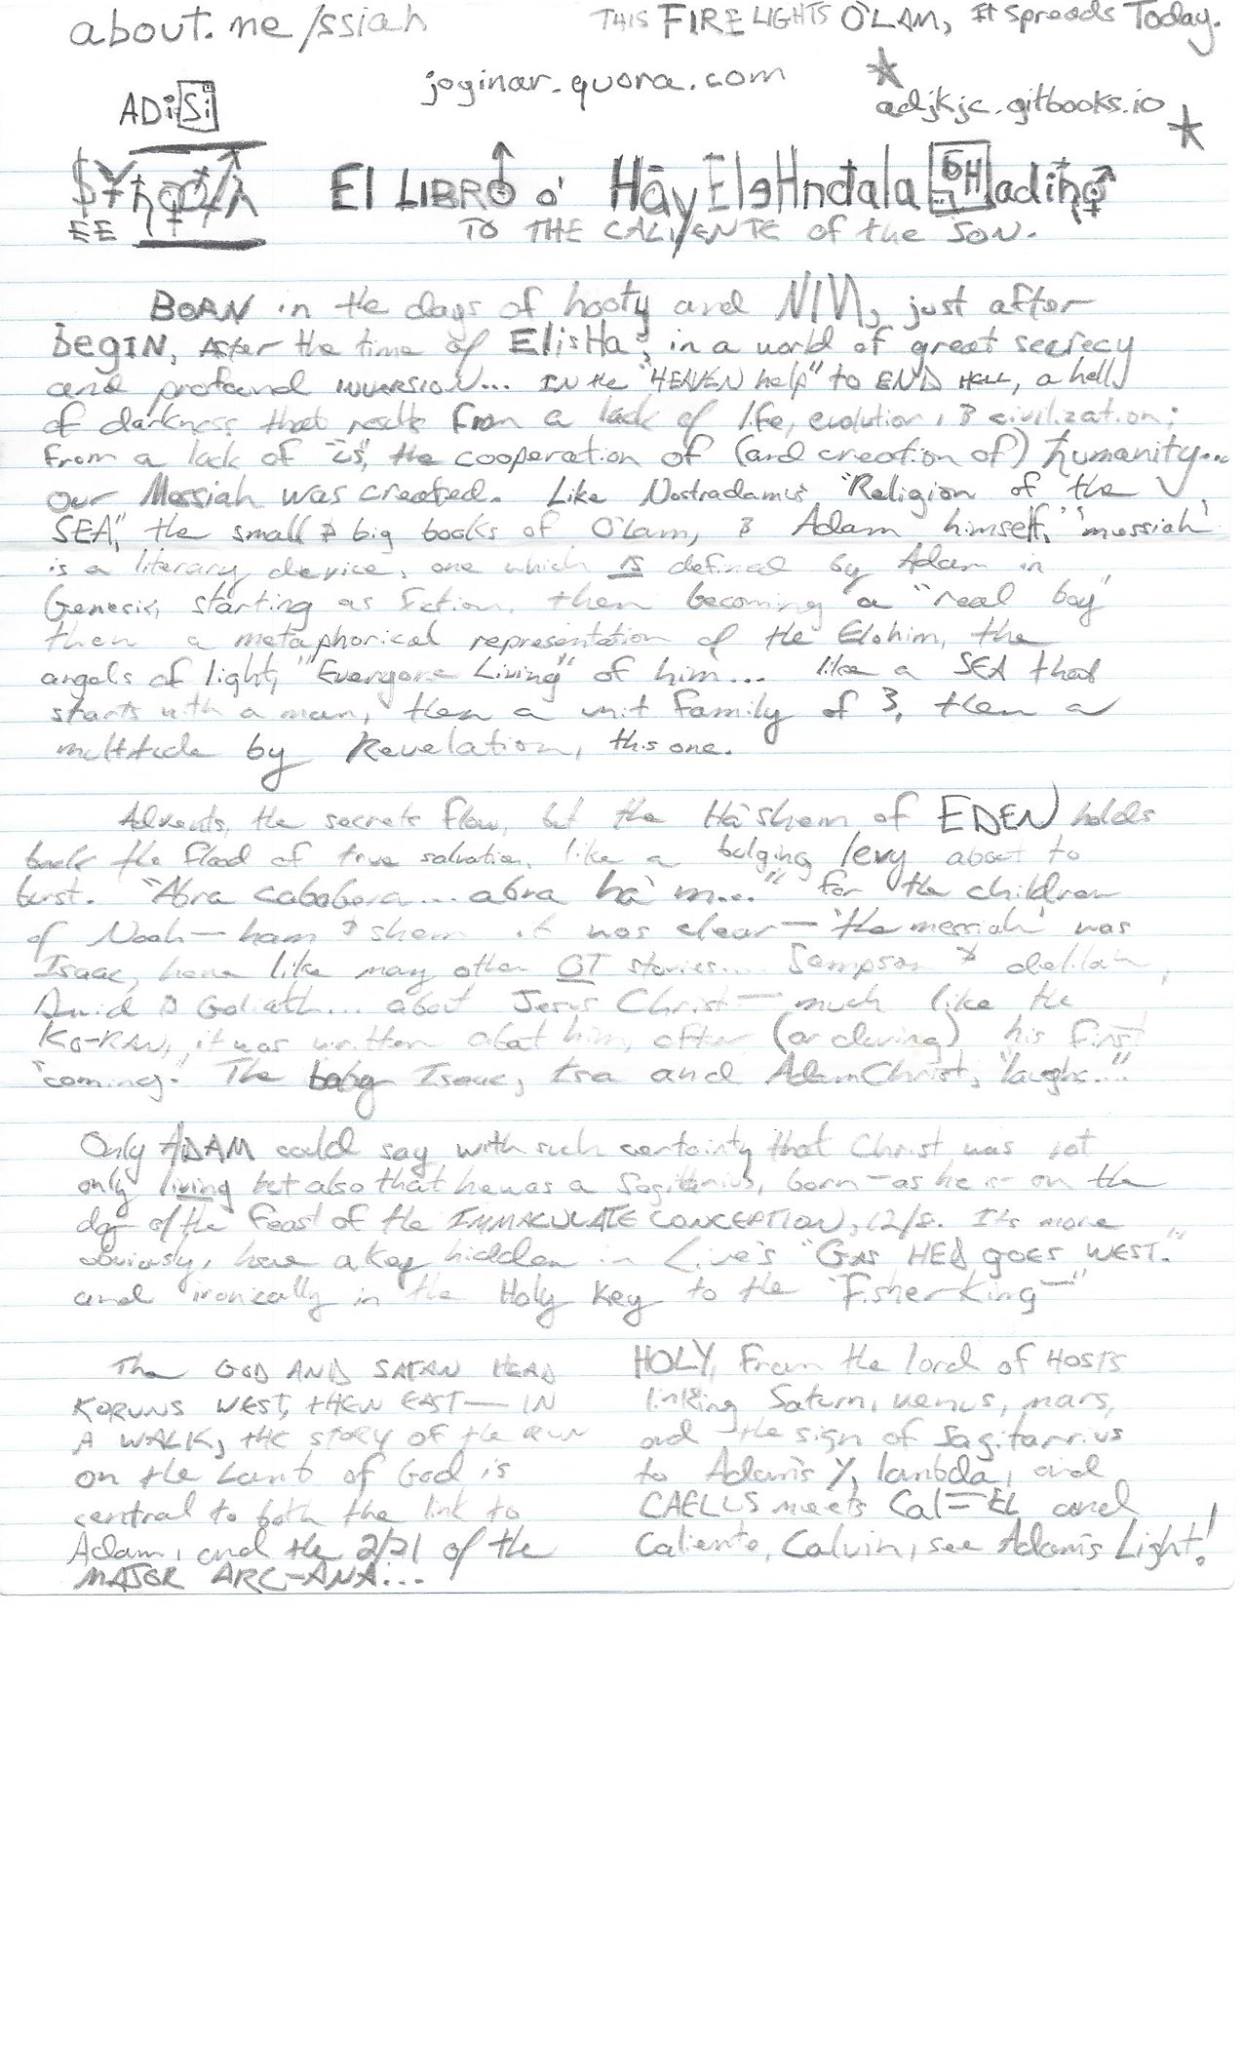 about.me/ssiah
THIS FIRE LIGHTS O'LAM, It spreads Today.
joginar.quora.com
adjkjc.gitbooks.io
ADi Si
EE
El LIBRO o'
TO THE CALIENTE of the SON.
BORN in the days of hooty and NIN, just after
begIN, After the time of ElisHa, in a world of great secrecy
and profound INVERSION... IN the "HEAVEN help" to END HELL, a hell
of darkness that results from a lack of life, evolution, & civilization;
from a lack of "is", the cooperation of (and creation of) humanity...
our Messiah was created. Like Nostradamus' "Religion of the
SEA", the small & big books of O'Lam, & Adam himself, 'messiah'
is a literary device, one which IS defined by Adam in
Genesis, starting as fiction, then becoming a "real boy"
then a metaphorical representation of the Elohim, the
angels of light, "Everyone Living" of him... like a SEA that
starts with a man, then a unit family of 3, then a
multitude by Revelation, this one.
Advents, the secrets flow, but the Ha'shem of EDEN holds
back the flood of true salvation, like a bulging levy about to
burst. "Abra cababara... abra ha'm..." For the children
of Noah — ham & shem it was clear — 'the messiah' was
Isaac, here like may other OT stories... Sampson & delilah,
David & Goliath... about Jesus Christ — much like the
Ko-RAN, it was written about him, after (or during) his first
"coming." The baby Isaac, Isa and Adam Christ, "laughs..."
Only ADAM could say with such certainty that Christ was not
only living but also that he was a Sagittarius, born — as he is — on the
day of the Feast of the IMMACULATE CONCEPTION, 12/8. It's more
obviously, here a key hidden in Live's "GAS HED GOES WEST."
and ironically in the Holy Key to the "Fisher King —"
The GOD AND SATAN HEAD
KORUNS WEST, THEN EAST — IN
A WALK, THE STORY OF THE RUN
on the Lamb of God is
central to both the link to
Adam, and the 2/21 of the
MAJOR ARC-ANA...
HOLY, from the lord of HOSTS
linking Saturn, venus, mars,
and the sign of Sagitarrius
to Adam's Y, lambda, and
CAELUS meets Cal=EL and
Caliente, Calvin, see Adam's Light!